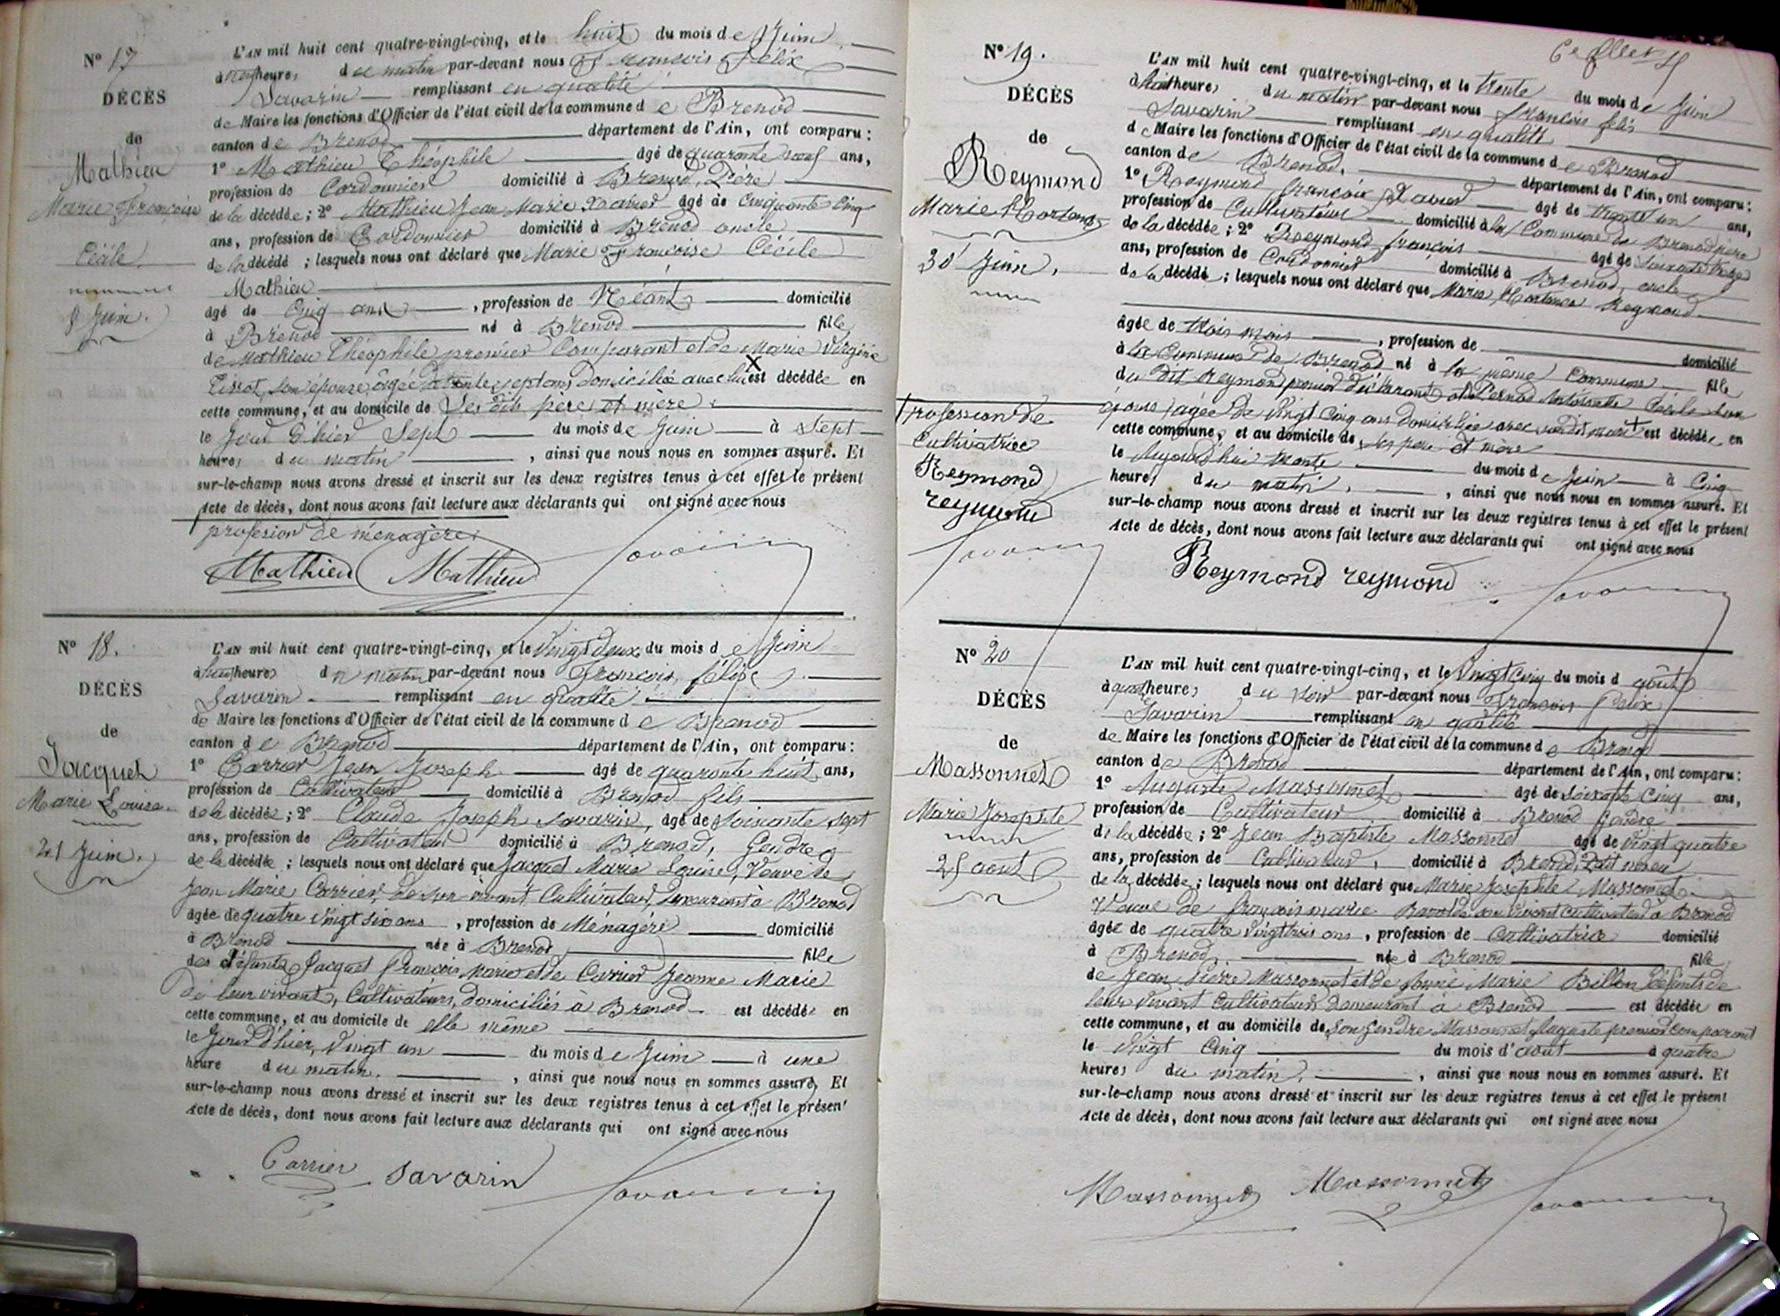 Nº 17
DÉCÈS
de
Mathieu
Marie Françoise
Cécile
8 Juin.
L'AN mil huit cent quatre-vingt-cinq, et le huit du mois de Juin
à neuf heures du matin par-devant nous François Félix
Savarin remplissant en qualité
de Maire les fonctions d'Officier de l'état civil de la commune de Brenod
canton de Brenod département de l'Ain, ont comparu :
1º Mathieu Théophile âgé de quarante neuf ans,
profession de Cordonnier domicilié à Brenod, Père
de la décédée ; 2º Mathieu Jean Marie Xavier âgé de Cinquante Cinq
ans, profession de Cordonnier domicilié à Brenod oncle
de la décédé ; lesquels nous ont déclaré que Marie Françoise Cécile
Mathieu
âgé de Cinq ans , profession de Néant domicilié
à Brenod né à Brenod fille
de Mathieu Théophile premier Comparant et de Marie Virginie
Tissot, son épouse, âgée de trente sept ans, domiciliée avec lui X est décédée en
cette commune, et au domicile de Ses dits père et mère
le Jour d'hier Sept du mois de Juin à Sept
heures du matin , ainsi que nous nous en sommes assuré. Et
sur-le-champ nous avons dressé et inscrit sur les deux registres tenus à cet effet le présent
Acte de décès, dont nous avons fait lecture aux déclarants qui ont signé avec nous
profession de ménagère
Mathieu Mathieu Savarin
Nº 18.
DÉCÈS
de
Jacquet
Marie Louise
21 Juin.
L'AN mil huit cent quatre-vingt-cinq, et le Vingt deux du mois de Juin
à huit heures du matin par-devant nous François félix
Savarin remplissant en qualité
de Maire les fonctions d'Officier de l'état civil de la commune de Brenod
canton de Brenod département de l'Ain, ont comparu :
1º Carrier Jean Joseph âgé de quarante huit ans,
profession de Cultivateur domicilié à Brenod fils
de la décédée ; 2º Claude Joseph Savarin, âgé de Soixante sept
ans, profession de Cultivateur domicilié à Brenod, Gendre
de la décédée ; lesquels nous ont déclaré que Jacquet Marie Louise, Veuve de
Jean Marie Carrier, de son vivant Cultivateur, demeurant à Brenod
âgée de quatre vingt six ans , profession de Ménagère domicilié
à Brenod née à Brenod fille
des défunts Jacquet François Marie et de Carrier Jeanne Marie
de leur vivant, Cultivateurs, domiciliés à Brenod est décédée en
cette commune, et au domicile de elle même
le Jour d'hier, vingt un du mois de Juin à une
heure du matin. , ainsi que nous nous en sommes assuré, Et
sur-le-champ nous avons dressé et inscrit sur les deux registres tenus à cet effet le présent
Acte de décès, dont nous avons fait lecture aux déclarants qui ont signé avec nous
Carrier Savarin Savarin
Nº 19.
DÉCÈS
de
Reymond
Marie Hortense
30 Juin.
profession de
Cultivatrice
Reymond
reymond
Savarin
L'AN mil huit cent quatre-vingt-cinq, et le trente du mois de Juin
à huit heures du matin par-devant nous François félix
Savarin remplissant en qualité
de Maire les fonctions d'Officier de l'état civil de la commune de Brenod
canton de Brenod. département de l'Ain, ont comparu :
1º Reymond françois Xavier âgé de trente un ans,
profession de Cultivateur domicilié à la Commune de Brenod père
de la décédée ; 2º Reymond françois âgé de Soixante treize
ans, profession de Cordonnier domicilié à Brenod, oncle
de la décédé ; lesquels nous ont déclaré que Marie Hortense Reymond
âgée de trois mois , profession de domicilié
à la Commune de Brenod né à la même Commune fille
du dit Reymond premier déclarant et de Pernod Antoinette Cécile son
épouse, âgée de Vingt cinq ans domiciliée avec son dit mari + est décédée en
cette commune, et au domicile de ses père et mère
le Aujourd'hui trente du mois de Juin à Cinq
heures du matin. , ainsi que nous nous en sommes assuré. Et
sur-le-champ nous avons dressé et inscrit sur les deux registres tenus à cet effet le présent
Acte de décès, dont nous avons fait lecture aux déclarants qui ont signé avec nous
Reymond reymond Savarin
Nº 20
DÉCÈS
de
Massonnet
Marie Josephte
25 août
L'AN mil huit cent quatre-vingt-cinq, et le Vingt Cinq du mois d août
à quatre heures du soir par-devant nous François Félix
Savarin remplissant en qualité
de Maire les fonctions d'Officier de l'état civil de la commune de Brenod
canton de Brenod département de l'Ain, ont comparu :
1º Auguste Massonnet âgé de Soixante Cinq ans,
profession de Cultivateur domicilié à Brenod Gendre
de la décédée ; 2º Jean Baptiste Massonnet âgé de Vingt quatre
ans, profession de Cultivateur, domicilié à Brenod, Petit neveu
de la décédée ; lesquels nous ont déclaré que Marie Josephte Massonnet
Veuve de françois marie son vivant Cultivateur à Brenod
âgée de quatre Vingt trois ans , profession de Cultivatrice domicilié
à Brenod, née à Brenod fille
de Jean Pierre Massonnet et de Marie Billon défunts de
leur vivant Cultivateurs demeurant à Brenod est décédée en
cette commune, et au domicile de son gendre Massonnet Auguste premier comparant
le Vingt Cinq du mois d'août à quatre
heures du matin. , ainsi que nous nous en sommes assuré. Et
sur-le-champ nous avons dressé et inscrit sur les deux registres tenus à cet effet le présent
Acte de décès, dont nous avons fait lecture aux déclarants qui ont signé avec nous
Massonnet Massonnet Savarin